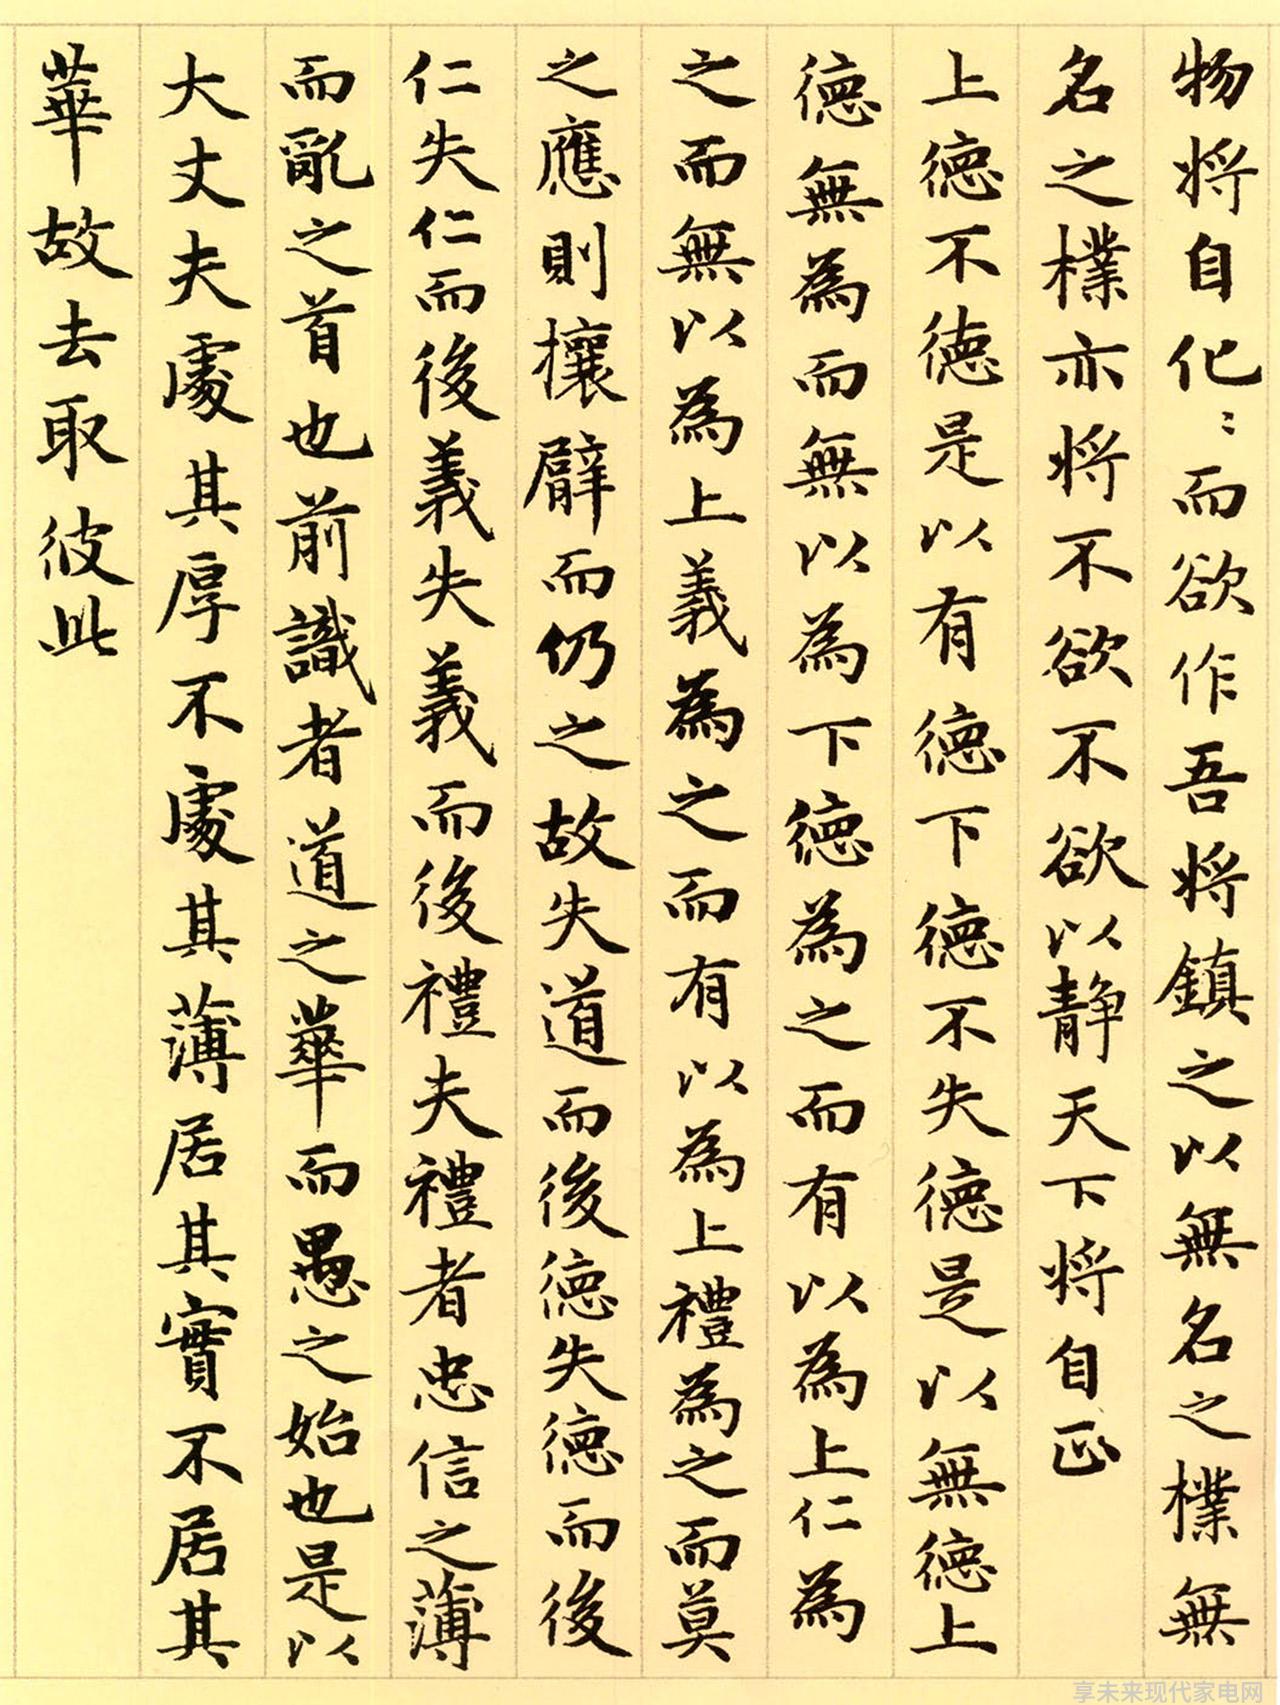 物将自化〻而欲作吾将鎮之以無名之樸無
名之樸亦将不欲不欲以静天下将自正
上徳不徳是以有徳下徳不失徳是以無徳上
徳無為而無以為下徳為之而有以為上仁為
之而無以為上義為之而有以為上禮為之而莫
之應則攘臂而仍之故失道而後徳失徳而後
仁失仁而後義失義而後禮夫禮者忠信之薄
而亂之首也前識者道之華而愚之始也是以
大丈夫處其厚不處其薄居其實不居其
華故去取彼此
享未来现代家电网